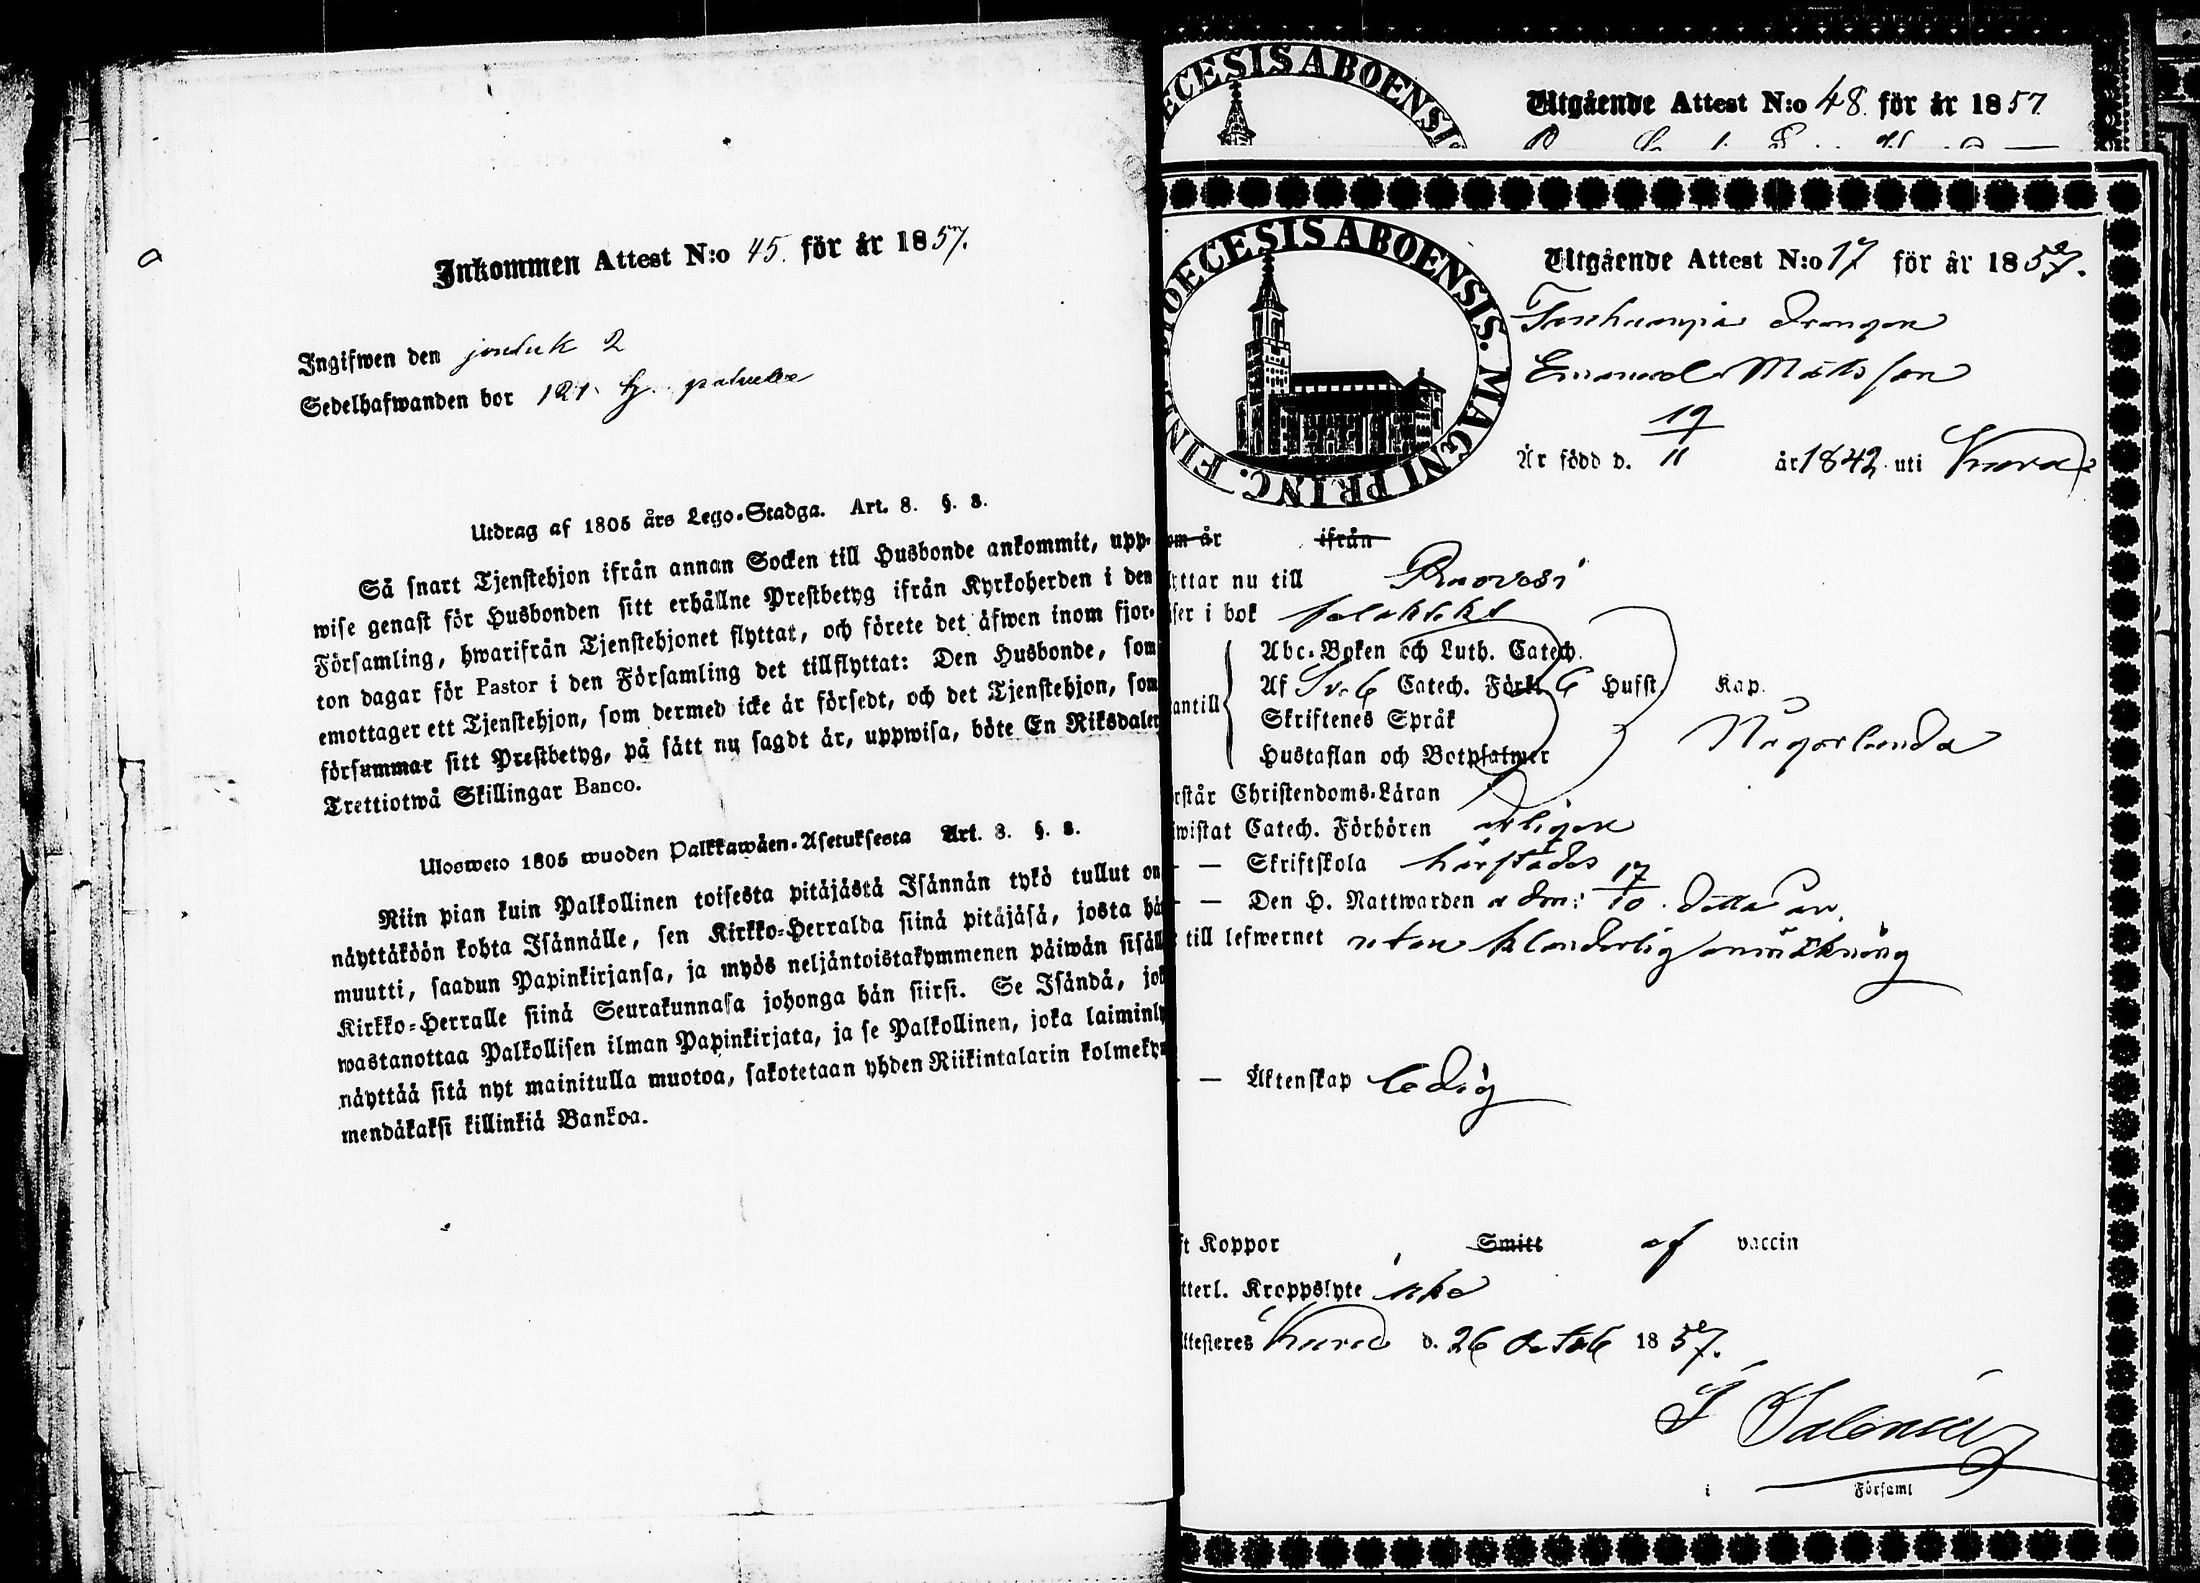 Inkommen Attest N:o 45. för år 1857.
Ingifwen den 2
Sedelhafwanden bor 121.
Utdrag af 1805 års Lego-Stadga. Art. 8. §. 3.
Så snart Tjenstehjon ifrån annan Socken till Husbonde ankommit, upp-
wise genast för Husbonden sitt erhållne Prestbetyg ifrån Kyrkoherden i den
Församling, hwarifrån Tjenstehjonet flyttat, och förete det äfwen inom fjor-
ton dagar för Pastor i den Församling det tillflyttat: Den Husbonde, som
emottager ett Tjenstehjon, som dermed icke är försedt, och det Tjenstehjon, som
försummar sitt Prestbetyg, på sätt nu sagdt är, uppwisa, böte En Riksdaler
Trettiotwå Skillingar Banco.
Ulosweto 1805 wuoden Palkkawäen-Asetuksesta Art. 8. §. 3.
Niin pian kuin Palkollinen toisesta pitäjästä Isännän tykö tullut on
näyttäköön kohta Isännälle, sen Kirkko-Herralda siinä pitäjäsä, josta hä
muutti, saadun Papinkirjansa, ja myös neljäntoistakymmenen päiwän sisäll
Kirkko-Herralle siinä Seurakunnasa johonga hän siirsi. Se Isändä, jok
wastanottaa Palkollisen ilman Papinkirjata, ja se Palkollinen, joka laiminly
näyttää sitä nyt mainitulla muotoa, sakotetaan yhden Riikintalarin kolmeky
mendäkaksi killinkiä Bankoa.
ECESIS ABOENSI
Utgående Attest N:o 48. för år 1857
DIOECESIS ABOENSIS. MAGNI PRINC. FIN
Utgående Attest N:o 17 för år 1857.
drängen
Emanuel Matsson
Är född d. 19/11 år 1842 uti
om år ifrån
ttar nu till
ser i bok
Abc-Boken och Luth. Catech.
Af Catech. Förkl. Husst. Kap.
antill
Skriftenes Språk
Hustaflan och Botpsalmer
Någorlunda
rstår Christendoms-Läran
wistat Catech. Förhören årligen
— — Skriftskola härstädes
— — Den H. Nattwarden 17/10. detta år.
till lefwernet utan klanderlig anmärkning
— — Äktenskap ledig
ft Koppor Smitt af vaccin
tterl. Kroppslyte icke
ttesteres d. 26 Octob 1857.
i Församl